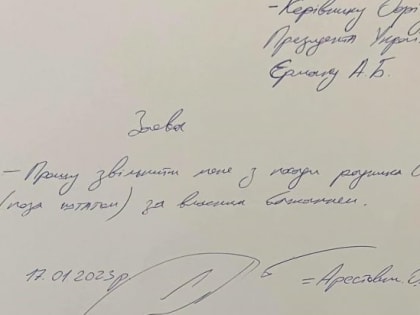 - Керівнику Офі
Президента Украї
Єрмаку А.Б.
Заява
- Прошу звільнити мене з посади радника
(поза штатом) за власним бажанням.
17.01.2023р.
Арестович